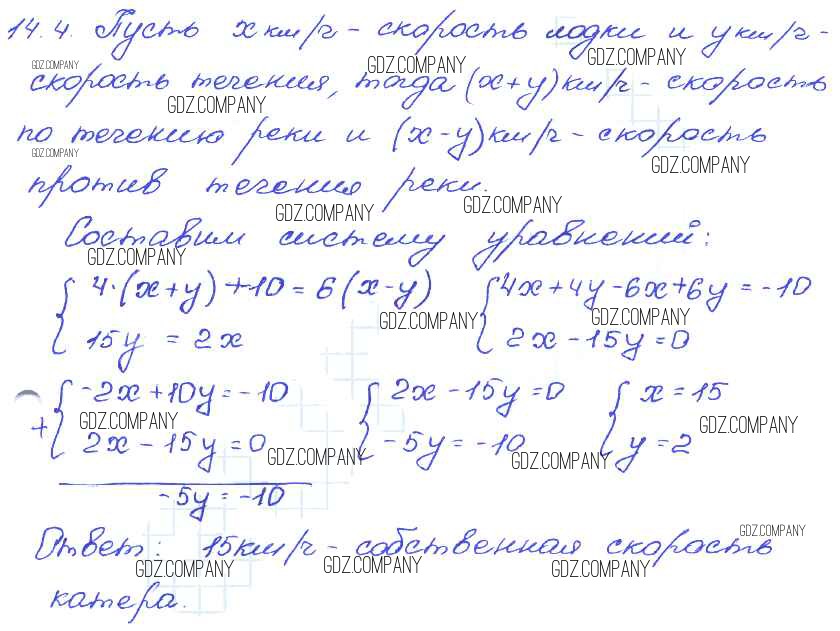 14.4. Пусть x км/ч - скорость лодки и y км/ч -
GDZ.COMPANY GDZ.COMPANY GDZ.COMPANY
скорость течения, тогда (x+y) км/ч - скорость
GDZ.COMPANY
по течению реки и (x-y) км/ч - скорость
GDZ.COMPANY GDZ.COMPANY
против течения реки.
GDZ.COMPANY GDZ.COMPANY
Составим систему уравнений:
GDZ.COMPANY
4·(x+y)+10=6(x-y) 4x+4y-6x+6y=-10
GDZ.COMPANY GDZ.COMPANY
15y = 2x 2x-15y=0
-2x+10y=-10 2x-15y=0 x=15
GDZ.COMPANY GDZ.COMPANY
+ 2x-15y=0 -5y=-10 y=2
GDZ.COMPANY GDZ.COMPANY
-5y=-10
Ответ: 15 км/ч - собственная скорость
GDZ.COMPANY GDZ.COMPANY GDZ.COMPANY GDZ.COMPANY
катера.